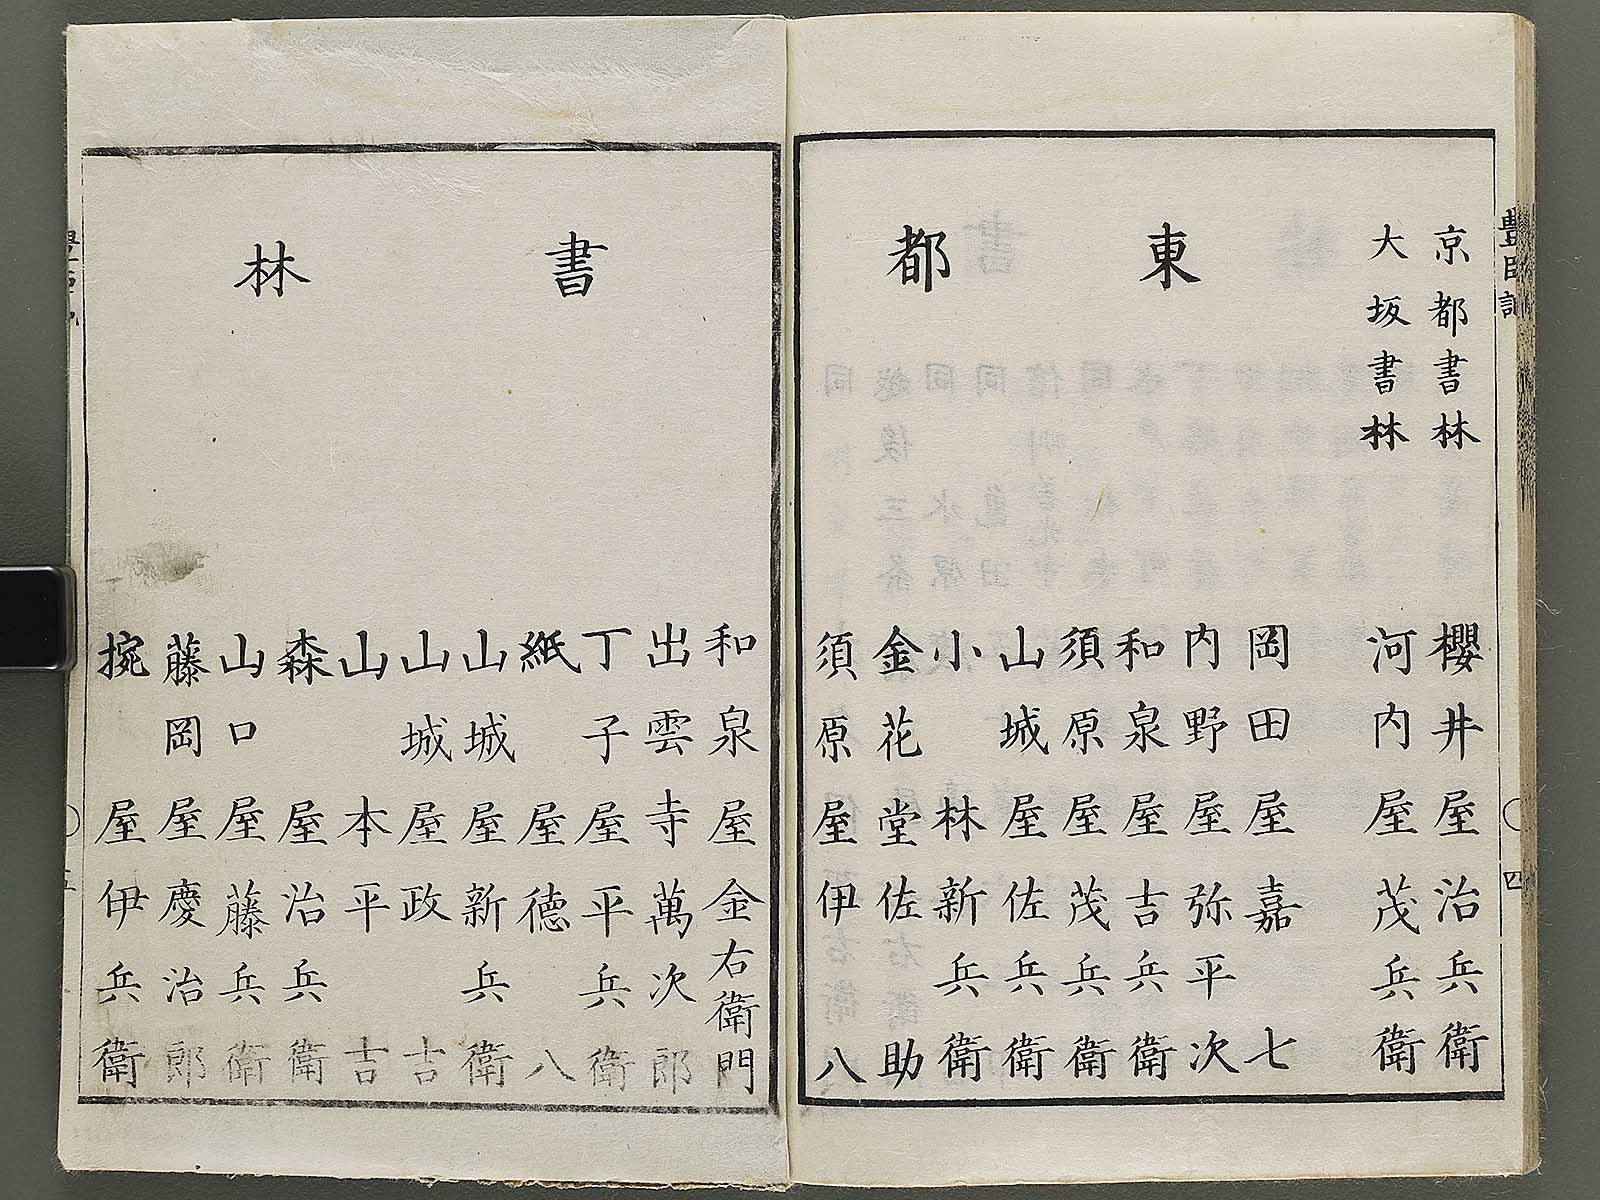 京都書林 櫻井屋治兵衛
大坂書林 河内屋茂兵衛
東都
岡田屋嘉七
内野屋弥平次
和泉屋吉兵衛
須原屋茂兵衛
山城屋佐兵衛
小林新兵衛
金花堂佐助
須原屋伊八
四
書林
和泉屋金右衛門
出雲寺萬次郎
丁子屋平兵衛
紙屋德八
山城屋新兵衛
山城屋政吉
山本平吉
森屋治兵衛
山口屋藤兵衛
藤岡屋慶治郎
椀屋伊兵衛